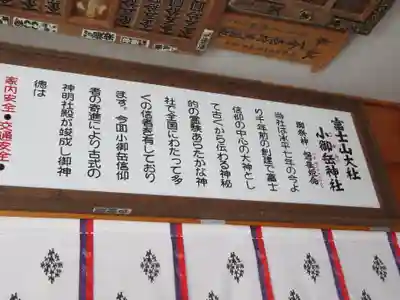 富士山大社
小御岳神社
御祭神 磐長姫命
当社は承平七年の今よ
り千年前の創建で富士
信仰の中心の大神とし
て古くから伝わる神秘
的の霊験あらたかな神
社で全国にわたって多
くの信者を有しており
ます。今回小御岳信仰
者の寄進により古式の
神明社殿が竣成し御神
徳は
家内安全●交通安全●